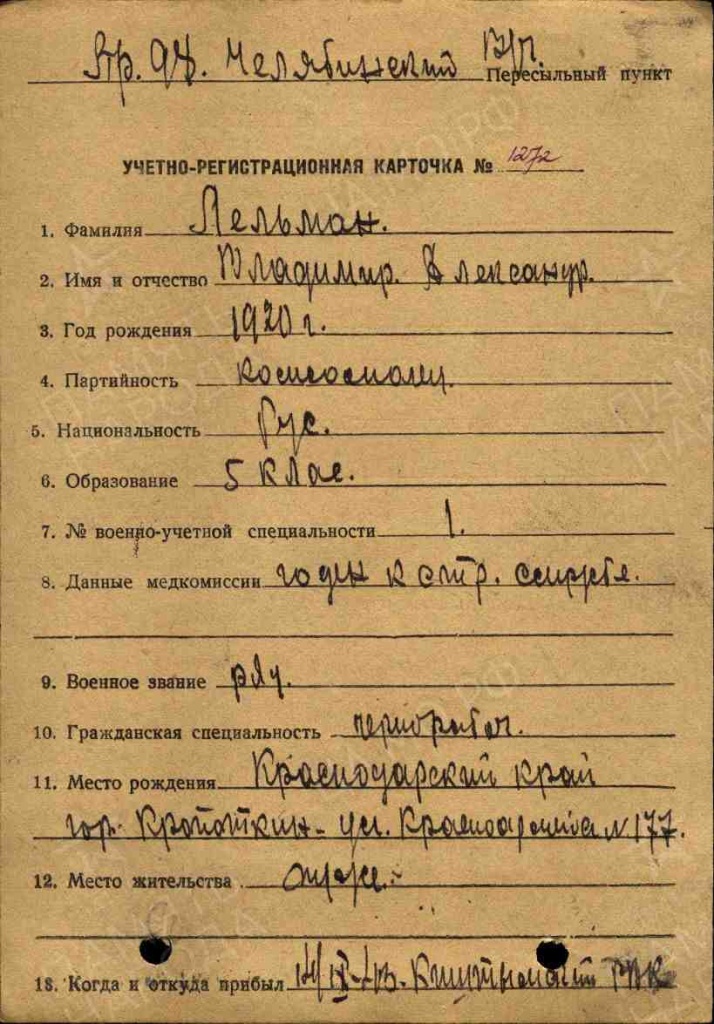 Стр. 98. Челябинский В/п.
Пересыльный пункт
УЧЕТНО-РЕГИСТРАЦИОННАЯ КАРТОЧКА № 1272
1. Фамилия Лельман.
2. Имя и отчество Владимир. Александр.
3. Год рождения 1920 г.
4. Партийность комсомолец.
5. Национальность Рус.
6. Образование 5 клас.
7. № военно-учетной специальности 1.
8. Данные медкомиссии годен к стр. службе.
9. Военное звание ряд.
10. Гражданская специальность чернорабоч.
11. Место рождения Краснодарский край
гор. Кропоткин - ул. Красноармейская № 177.
12. Место жительства
13. Когда и откуда прибыл 14/IV-43. Кыштымский РВК